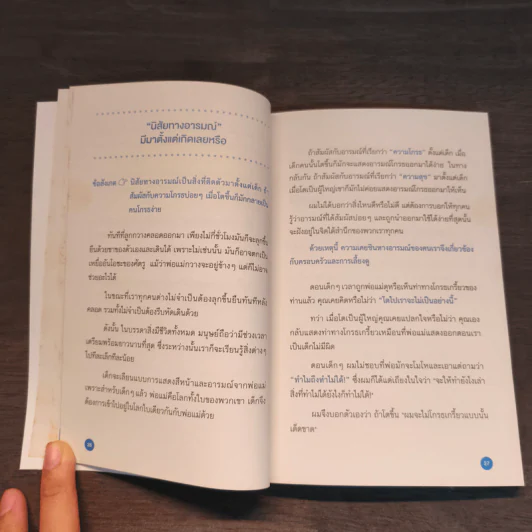 “นิสัยทางอารมณ์”
มีมาตั้งแต่เกิดเลยหรือ
ข้อสังเกต 👉 นิสัยทางอารมณ์เป็นสิ่งที่ติดตัวมาตั้งแต่เด็ก ถ้า
สัมผัสกับความโกรธบ่อยๆ เมื่อโตขึ้นก็มักกลายเป็น
คนโกรธง่าย
ทันทีที่ลูกกวางคลอดออกมา เพียงไม่กี่ชั่วโมงมันก็จะลุกขึ้น
ยืนด้วยขาของตัวเองและเดินได้ เพราะไม่เช่นนั้น มันก็อาจตกเป็น
เหยื่ออันโอชะของศัตรู แม้ว่าพ่อแม่กวางจะอยู่ข้างๆ แต่ก็ไม่อาจ
ช่วยอะไรได้
ในขณะที่เราทุกคนต่างไม่จำเป็นต้องลุกขึ้นยืนทันทีหลัง
คลอด รวมทั้งไม่จำเป็นต้องรีบหัดเดินด้วย
ดังนั้น ในบรรดาสิ่งมีชีวิตทั้งหมด มนุษย์ถือว่ามีช่วงเวลา
เตรียมพร้อมยาวนานที่สุด ซึ่งระหว่างนั้นเราก็จะเรียนรู้สิ่งต่างๆ
ไปทีละเล็กทีละน้อย
เด็กจะเลียนแบบการแสดงสีหน้าและอารมณ์จากพ่อแม่
เพราะสำหรับเด็กๆ แล้ว พ่อแม่คือโลกทั้งใบของพวกเขา เด็กจึง
ต้องการเข้าไปอยู่ในโลกใบเดียวกันกับพ่อแม่ด้วย
36
ถ้าสัมผัสกับอารมณ์ที่เรียกว่า “ความโกรธ” ตั้งแต่เด็ก เมื่อ
เด็กคนนั้นโตขึ้นก็มักจะแสดงอารมณ์โกรธออกมาได้ง่าย ในทาง
กลับกัน ถ้าสัมผัสกับอารมณ์ที่เรียกว่า “ความสุข” มาตั้งแต่เด็ก
เมื่อโตเป็นผู้ใหญ่เขาก็มักไม่ค่อยแสดงอารมณ์โกรธออกมาให้เห็น
ผมไม่ได้บอกว่าสิ่งไหนดีหรือไม่ดี แต่ต้องการบอกให้ทุกคน
รู้ว่าอารมณ์ที่ได้สัมผัสบ่อยๆ และถูกนำออกมาใช้ได้ง่ายที่สุดนั้น
จะฝังอยู่ในจิตใต้สำนึกของพวกเราทุกคน
ด้วยเหตุนี้ ความเคยชินทางอารมณ์ของคนเราจึงเกี่ยวข้อง
กับครอบครัวและการเลี้ยงดู
ตอนเด็กๆ เวลาถูกพ่อแม่ดุหรือเห็นท่าทางโกรธเกรี้ยวของ
ท่านแล้ว คุณเคยคิดหรือไม่ว่า “โตไปเราจะไม่เป็นอย่างนี้”
ทว่า เมื่อโตเป็นผู้ใหญ่คุณเคยแปลกใจหรือไม่ว่า คุณเอง
กลับแสดงท่าทางโกรธเกรี้ยวเหมือนที่พ่อแม่แสดงออกตอนเรา
เป็นเด็กไม่มีผิด
ตอนเด็กๆ ผมไม่ชอบที่พ่อมักจะโมโหและเอาแต่ถามว่า
“ทำไมถึงทำไม่ได้!” ซึ่งผมก็ได้แต่เถียงในใจว่า “จะให้ทำยังไงเล่า
สิ่งที่ทำไม่ได้ยังไงก็ทำไม่ได้!”
ผมจึงบอกตัวเองว่า ถ้าโตขึ้น “ผมจะไม่โกรธเกรี้ยวแบบนั้น
เด็ดขาด”
37